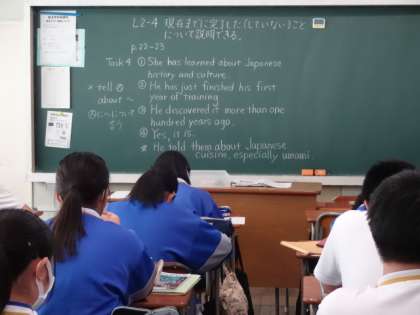 L2-4 現在までに完了した(していない)こと
について説明できる。
p.22-23
Task 4 ① She has learned about Japanese
history and culture.
② He has just finished his first
year of training
③ He discovered it more than one
hundred years ago.
④ Yes, it is.
* He told them about Japanese
cuisine, especially umami.
× tell
about ~